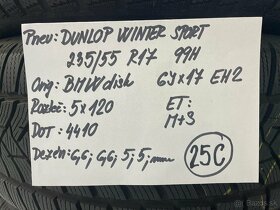 Pneu: DUNLOP WINTER SPORT
235/55 R17 99H
Orig: BMW disk 6Jx17 EH2
Rozteč: 5x120 ET:
DOT: 4410 M+S
Dezén: 6,6; 6,6; 5; 5; mm
25C